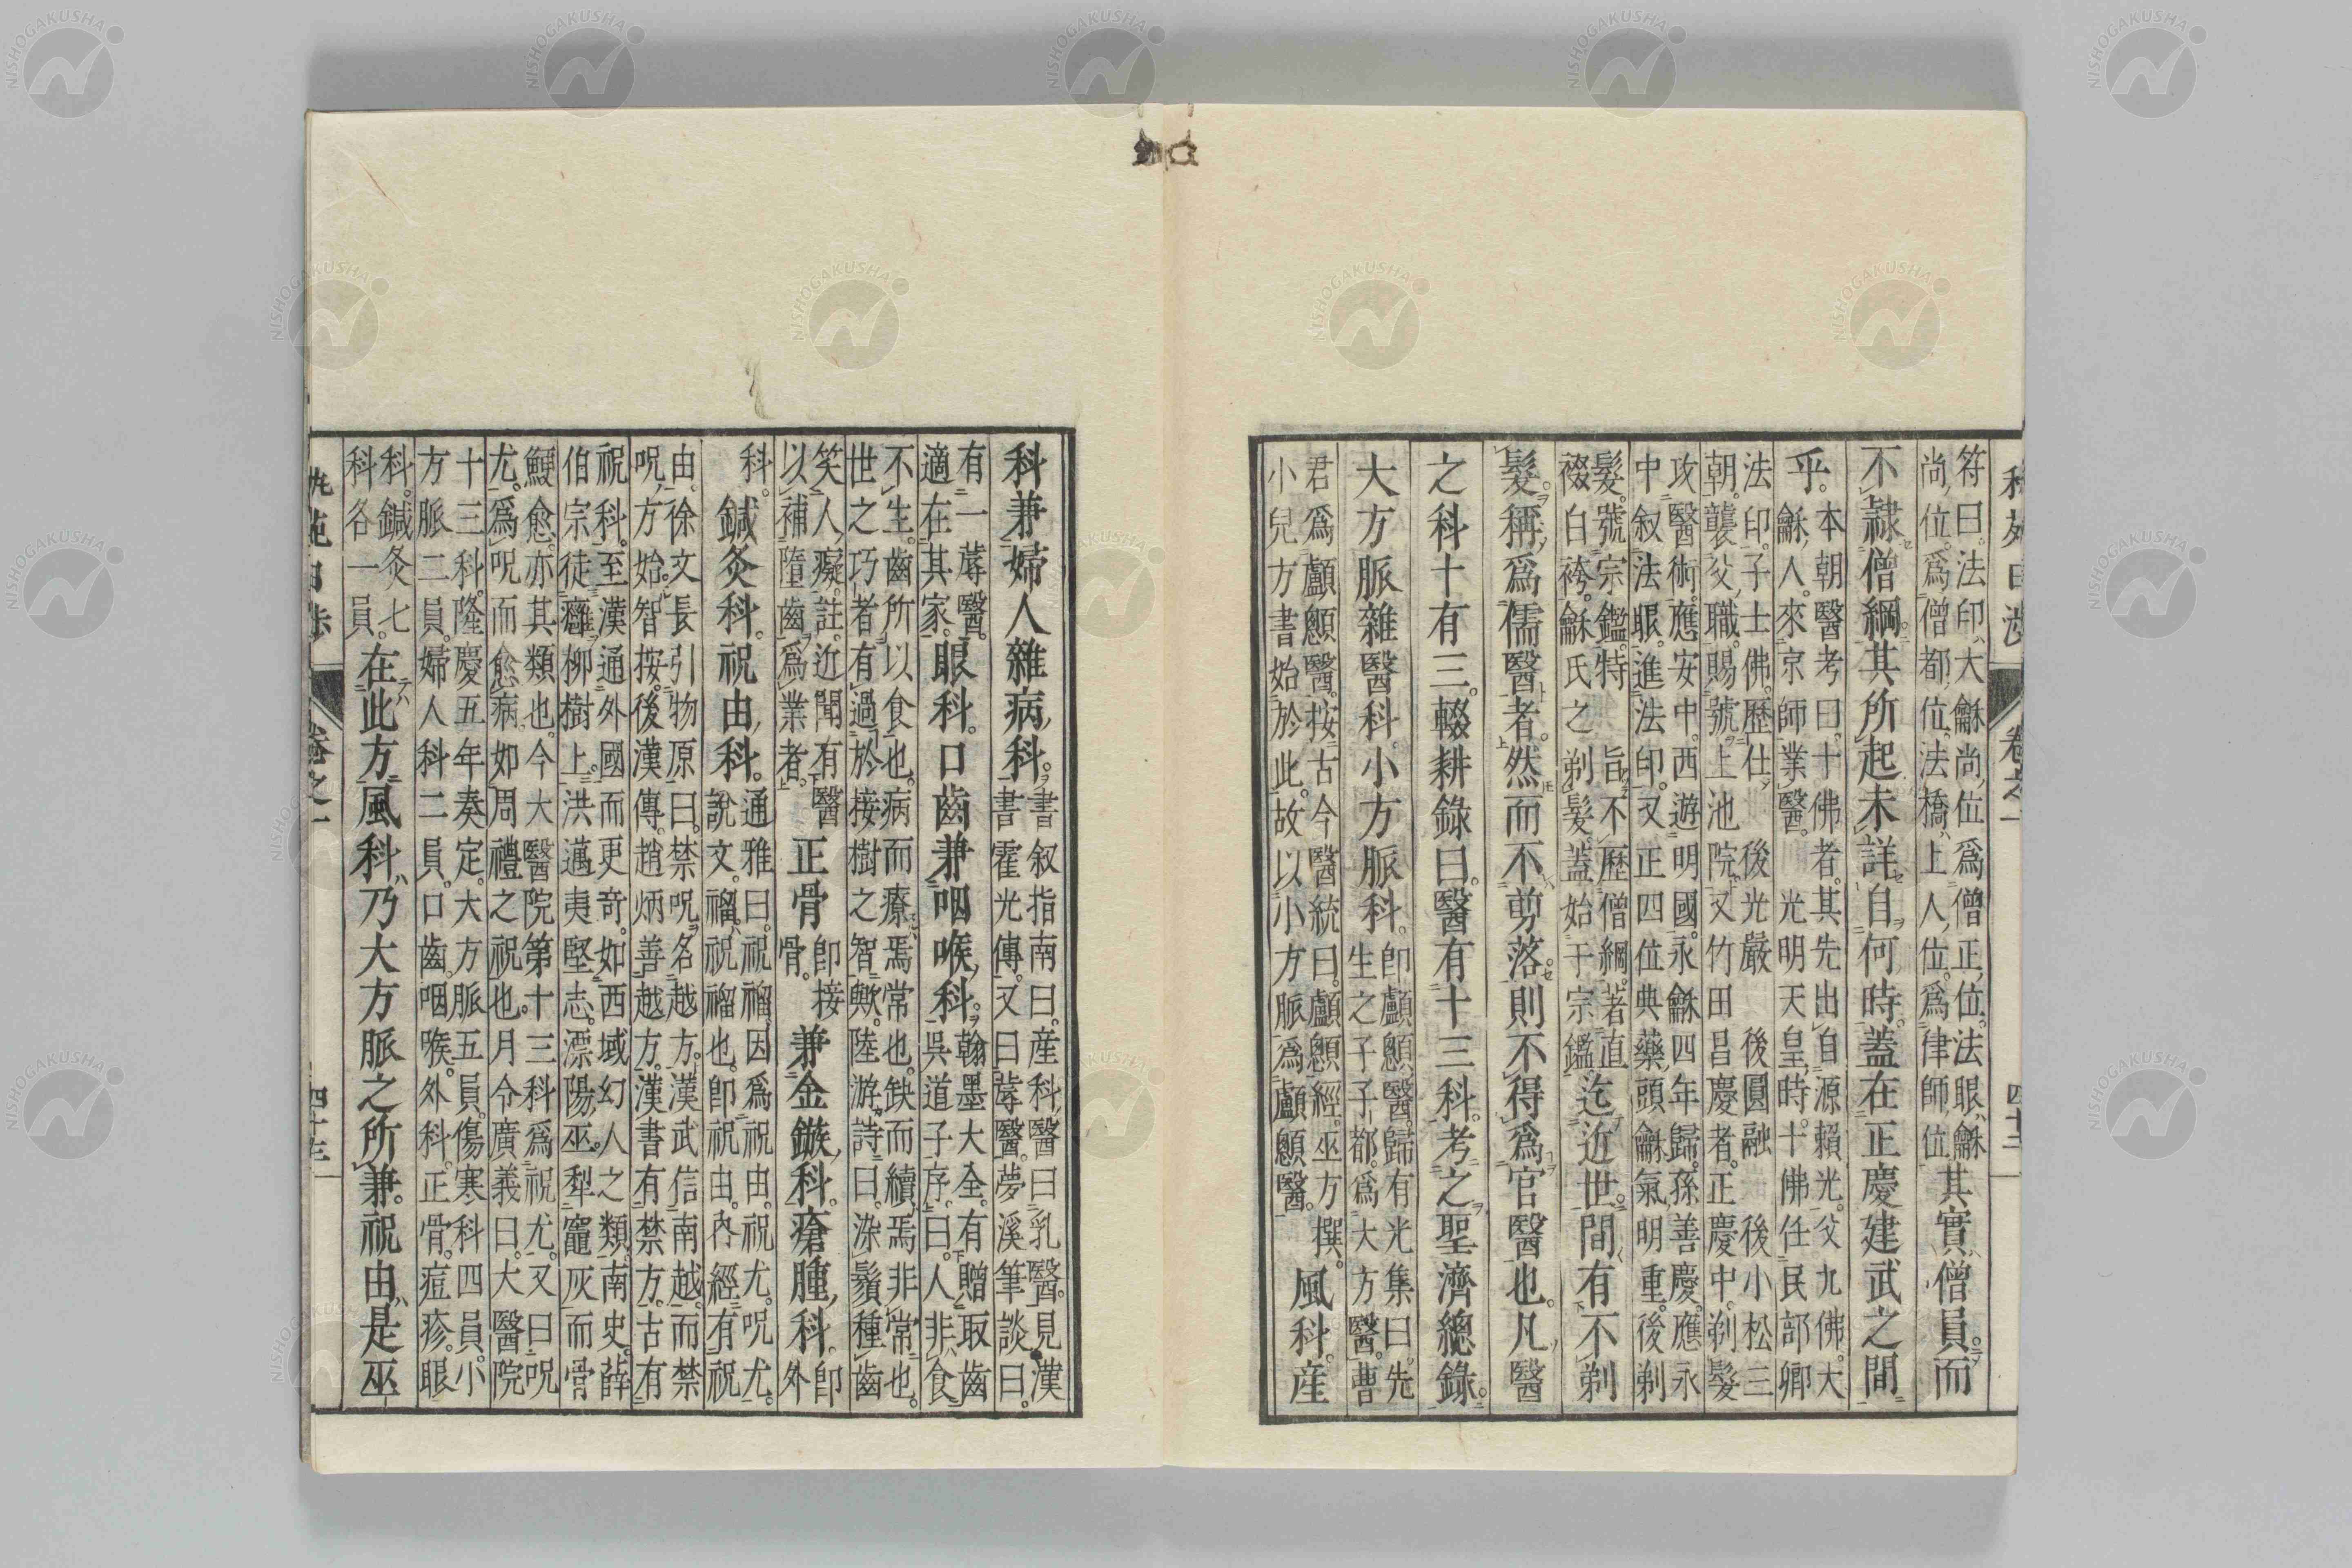 卷之一 四十二
符曰。法印、大龢尚、位爲僧正、位。法眼、龢
尚、位。爲僧都、位。法橋、上人、位。爲律師、位
其實、僧員。而
不隷僧綱。其所起未詳自何時。蓋在正慶建武之間
乎。
本朝醫考曰。十佛者。其先出自源賴光。父九佛。大
龢人。來京師業醫。光明天皇時。十佛任民部卿
法印。子士佛。歷仕 後光嚴 後圓融 後小松三
朝。襲父職。賜號上池院。又竹田昌慶者。正慶中。剃髮
攻醫術。應安中。西遊明國。永龢四年歸。孫善慶。應永
中叙法眼。進法印。又正四位典藥頭龢氣明重。後剃
髮。號宗鑑。特旨不歷僧綱。著直
裰白袴。龢氏之剃髮。蓋始于宗鑑
迄近世。間有不剃
髮。稱爲儒醫者。然而不剪落。則不得爲官醫也。凡醫
之科十有三。輟耕錄曰。醫有十三科。考之聖濟總錄。
大方脈雜醫科。小方脈科。
即顱顖醫。歸有光集曰。先
生之子子都。爲大方醫。曹
君爲顱顖醫。按古今醫統曰。顱顖經。巫方撰。
小兒方書始於此。故以小方脈爲顱顖醫。
風科。産
科兼婦人雜病科。
書叙指南曰。産科醫曰乳醫。見漢
書霍光傳。又曰蓐醫。夢溪筆談曰。
有一蓐醫。
適在其家。
眼科。口齒兼咽喉科。
翰墨大全。有贈取齒
吳道子序。曰。人非食
不生。齒所以食也。病而療焉常也。缺而續焉非常也。
世之巧者有過於接樹之智歟。陸游詩曰。染鬚種齒
笑人癡。註。近聞有醫
以補墮齒爲業者。
正骨
即接
骨。
兼金鏃科。瘡腫科。
即
外
科。
鍼灸科。祝由科。
通雅曰。祝䄂因爲祝由。祝尤。呪尤。
說文。䄂。祝䄂也。即祝由。內經有祝
由。徐文長引物原曰。禁呪名越方。漢武信南越。而禁
呪方始。智按。後漢傳。趙炳善越方。漢書有禁方。古有
祝科。至漢通外國而更奇。如西域幻人之類。南史。薛
伯宗徒癰柳樹上。洪邁夷堅志。漂陽巫。犁竈灰而骨
鯁愈。亦其類也。今大醫院第十三科爲祝尤。又曰呪
尤。爲呪而愈病。如周禮之祝也。月令廣義曰。大醫院
十三科。隆慶五年奏定。大方脈五員。傷寒科四員。小
方脈二員。婦人科二員。口齒。咽喉。外科。正骨。痘疹。眼
科。鍼灸七
科各一員。
在此方風科乃大方脈之所兼。祝由是巫
卷之一 四十三
NISHOGAKUSHA